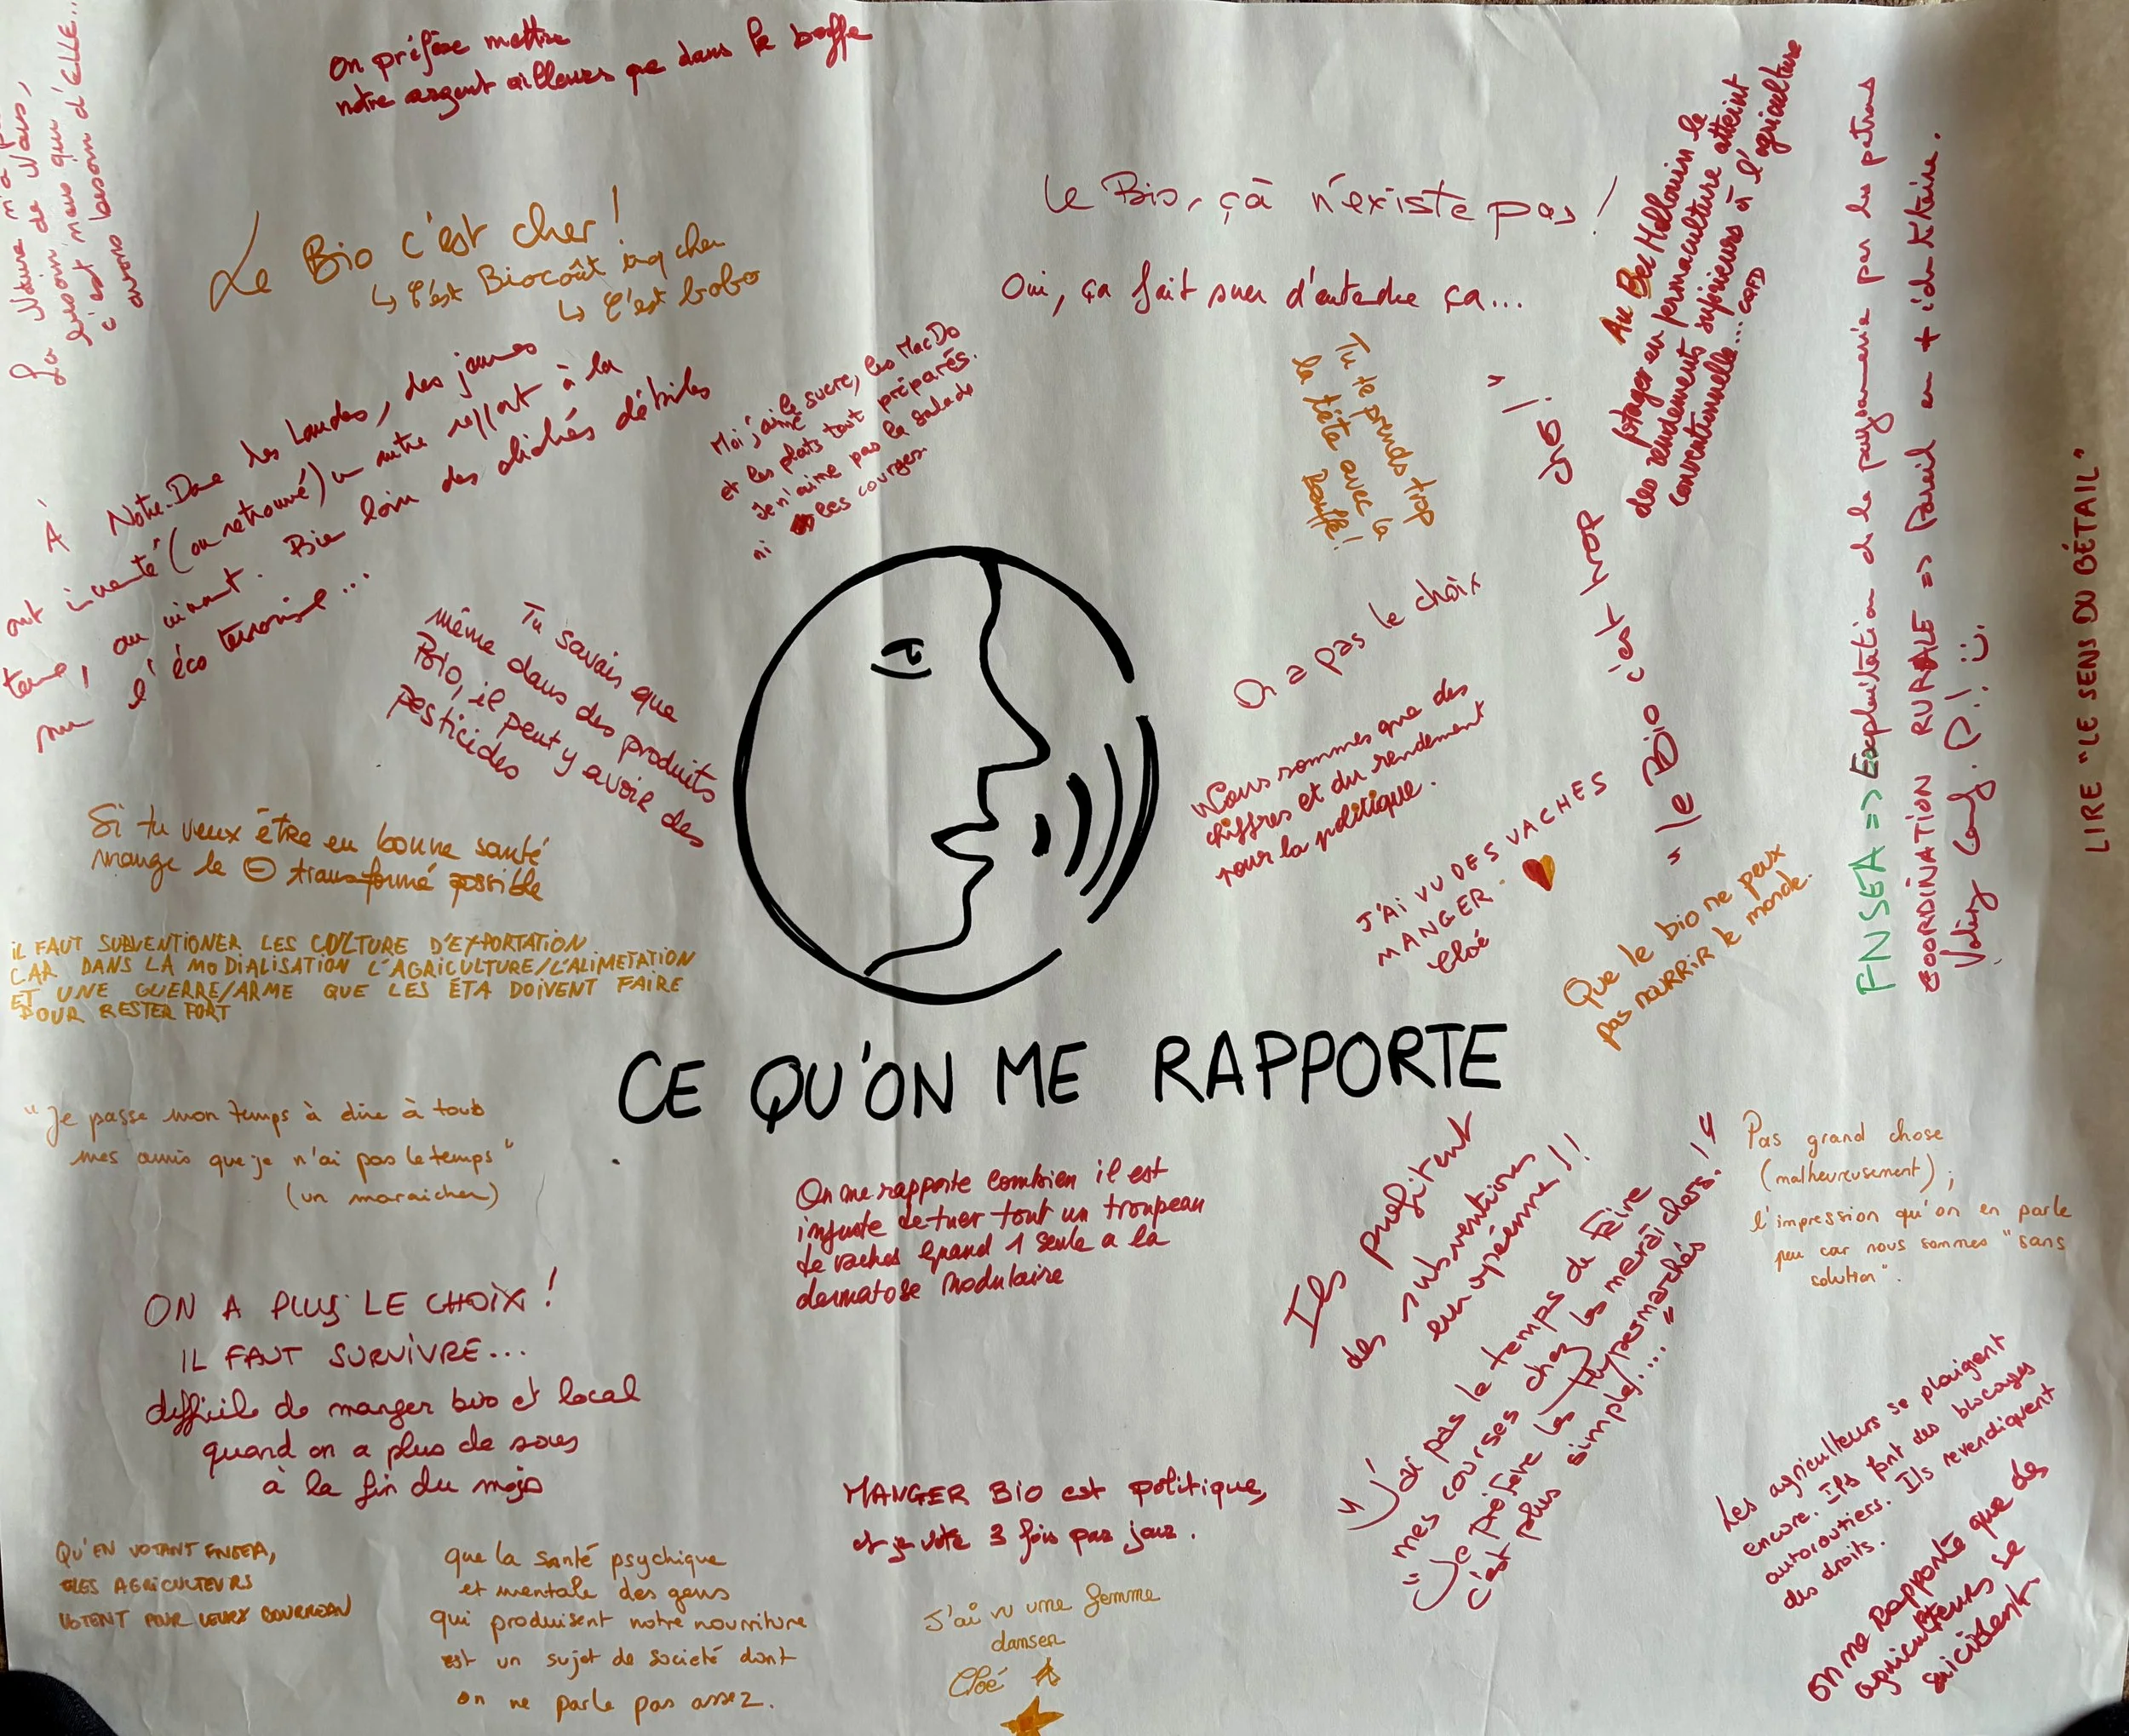 On préfère mettre
notre argent ailleurs que dans la bouffe
La Nature n'a pas
besoin de Nous,
c'est nous qui
avons besoin d'ELLE...
Le Bio c'est cher !
↳ C'est Biocoût cher
↳ C'est bobo
Le Bio, çà n'existe pas !
Oui, ça fait suer d'entendre ça...
Au Bec Hellouin le
potager en permaculture atteint
des rendements supérieurs à l'agriculture
conventionnelle... CQFD
FNSEA => Exploitation de la paysannerie par les patrons
COORDINATION RURALE => Pareil en + identitaire.
Votez Conf. P. ! ü.
LIRE "LE SENS DU BÉTAIL"
À Notre-Dame des Landes, des jeunes
ont inventé (ou retrouvé) un autre rapport à la
terre, au vivant. Bien loin des clichés débiles
sur l'éco terrorisme...
Moi j'aime le sucre, les MacDo
et les plats tout préparés.
Je n'aime pas la salade
ni les courges.
Tu te prends trop
la tête avec la
Bouffe !
"le Bio c'est trop cho !"
Tu savais que
même dans des produits
Bio, il peut y avoir des
pesticides
On a pas le choix
Nous sommes que des
chiffres et du rendement
pour la politique.
J'AI VU DES VACHES
MANGER.
Cloé
Que le bio ne peux
pas nourrir le monde.
Si tu veux être en bonne santé
mange le ⊖ transformé possible
IL FAUT SUBVENTIONER LES CULTURE D'EXPORTATION
CAR DANS LA MODIALISATION L'AGRICULTURE/L'ALIMETATION
ET UNE GUERRE/ARME QUE LES ÉTA DOIVENT FAIRE
POUR RESTER FORT
CE QU'ON ME RAPPORTE
"Je passe mon temps à dire à tous
mes amis que je n'ai pas le temps"
(un maraicher)
On me rapporte combien il est
injuste de tuer tout un troupeau
de vaches quand 1 seule a la
dermatose nodulaire
Ils profitent
des subventions
européenne !!
"J'ai pas le temps de Faire
mes courses chez les maraîchers !"
"Je préfère les Hypermarchés
c'est plus simple !...."
Pas grand chose
(malheureusement) ;
l'impression qu'on en parle
peu car nous sommes "sans
solution".
ON A PLUS LE CHOIX !
IL FAUT SURVIVRE...
difficile de manger bio et local
quand on a plus de sous
à la fin du mois
MANGER BIO est politique,
et je vote 3 fois par jour.
Les agriculteurs se plaigent
encore. Ils font des blocages
autoroutiers. Ils revendiquent
des droits.
On me Rapporte que des
agriculteurs se
suicident.
QU'EN VOTANT FNSEA,
LES AGRICULTEURS
VOTENT POUR LEURS BOURREAU
que la santé psychique
et mentale des gens
qui produisent notre nourriture
est un sujet de societé dont
on ne parle pas assez.
J'ai vu une femme
danser
Cloé